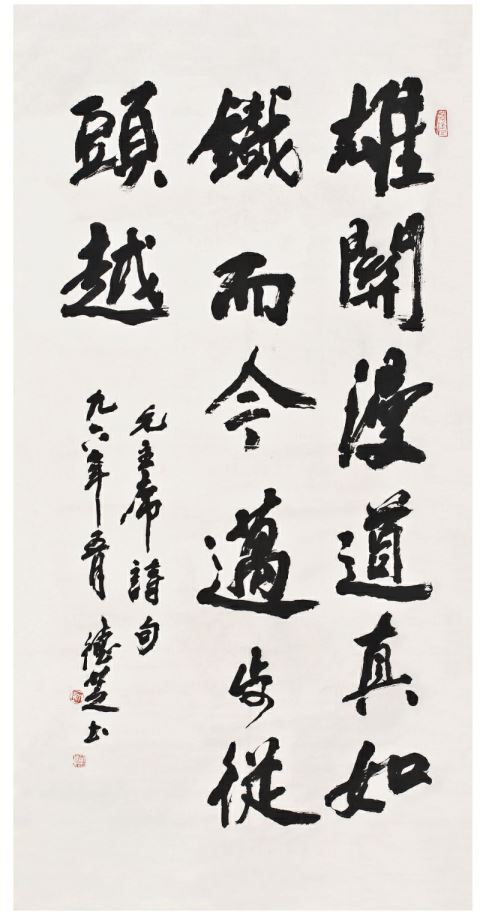 雄關漫道真如
鐵而今邁步從
頭越
毛主席詩句
九六年五月 德芝书